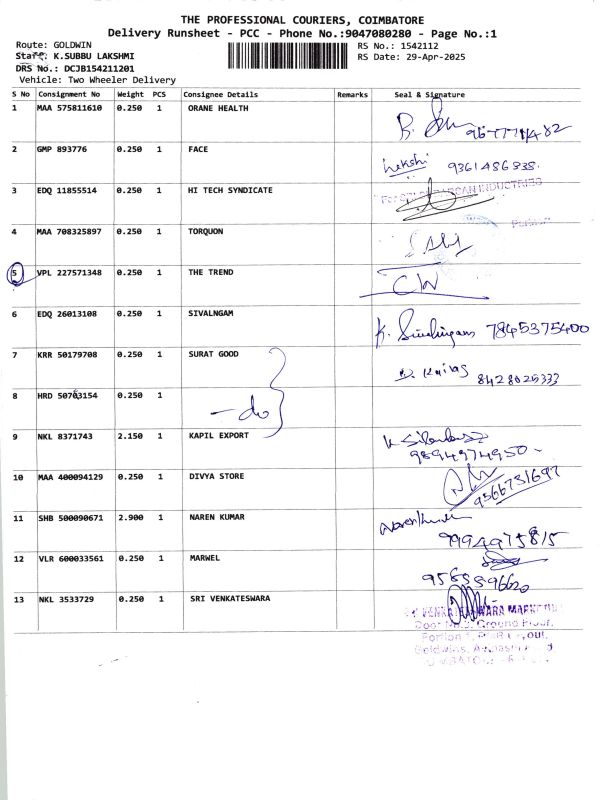 THE PROFESSIONAL COURIERS, COIMBATORE
Delivery Runsheet - PCC - Phone No.:9047080280 - Page No.:1
Route: GOLDWIN RS No.: 1542112
Staff: K.SUBBU LAKSHMI RS Date: 29-Apr-2025
DRS No.: DCJB154211201
Vehicle: Two Wheeler Delivery
S No Consignment No Weight PCS Consignee Details Remarks Seal & Signature
1 MAA 575811610 0.250 1 ORANE HEALTH
2 GMP 893776 0.250 1 FACE 9361486335.
3 EDQ 11855514 0.250 1 HI TECH SYNDICATE
4 MAA 708325897 0.250 1 TORQUON
5 VPL 227571348 0.250 1 THE TREND
6 EDQ 26013108 0.250 1 SIVALNGAM K. Sivalingam 7845375400
7 KRR 50179708 0.250 1 SURAT GOOD 8428025333
8 HRD 50703154 0.250 1 - do
9 NKL 8371743 2.150 1 KAPIL EXPORT 9894974950
10 MAA 400094129 0.250 1 DIVYA STORE 9566731697
11 SHB 500090671 2.900 1 NAREN KUMAR 9994975815
12 VLR 600033561 0.250 1 MARWEL
13 NKL 3533729 0.250 1 SRI VENKATESWARA